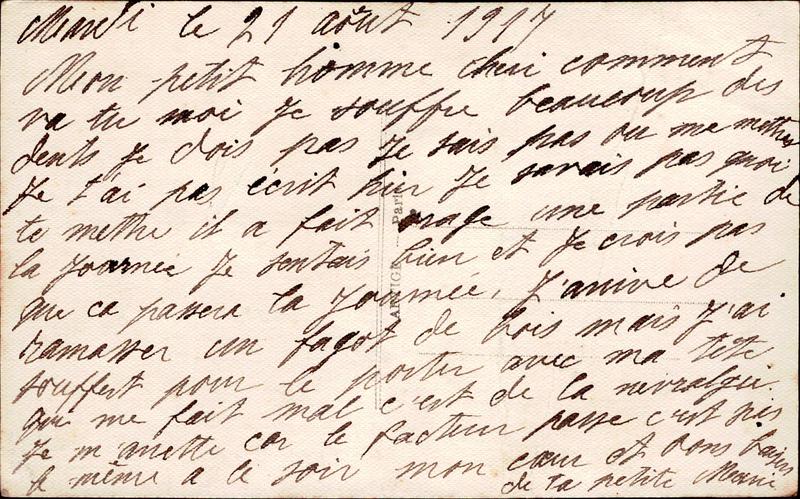 Mardi le 21 août 1917
Mon petit homme cheri comment
va tu moi je souffre beaucoup des
dents je dois pas je sais pas ou me mettre
Je t'ai pas écrit hier je savais pas quoi
te mettre il a fait orage une partie de
la journée je sentais bien et je crois pas
que ca passera la journée, J'arrive de
ramasser un fagot de bois mais j'ai
souffert pour le porter avec ma tête
que me fait mal c'est de la nevralgie.
Je m'arrette car le facteur passe c'est pis
le même a ce soir mon cœur et bons baisers
de ta petite
PARTIGE Paris